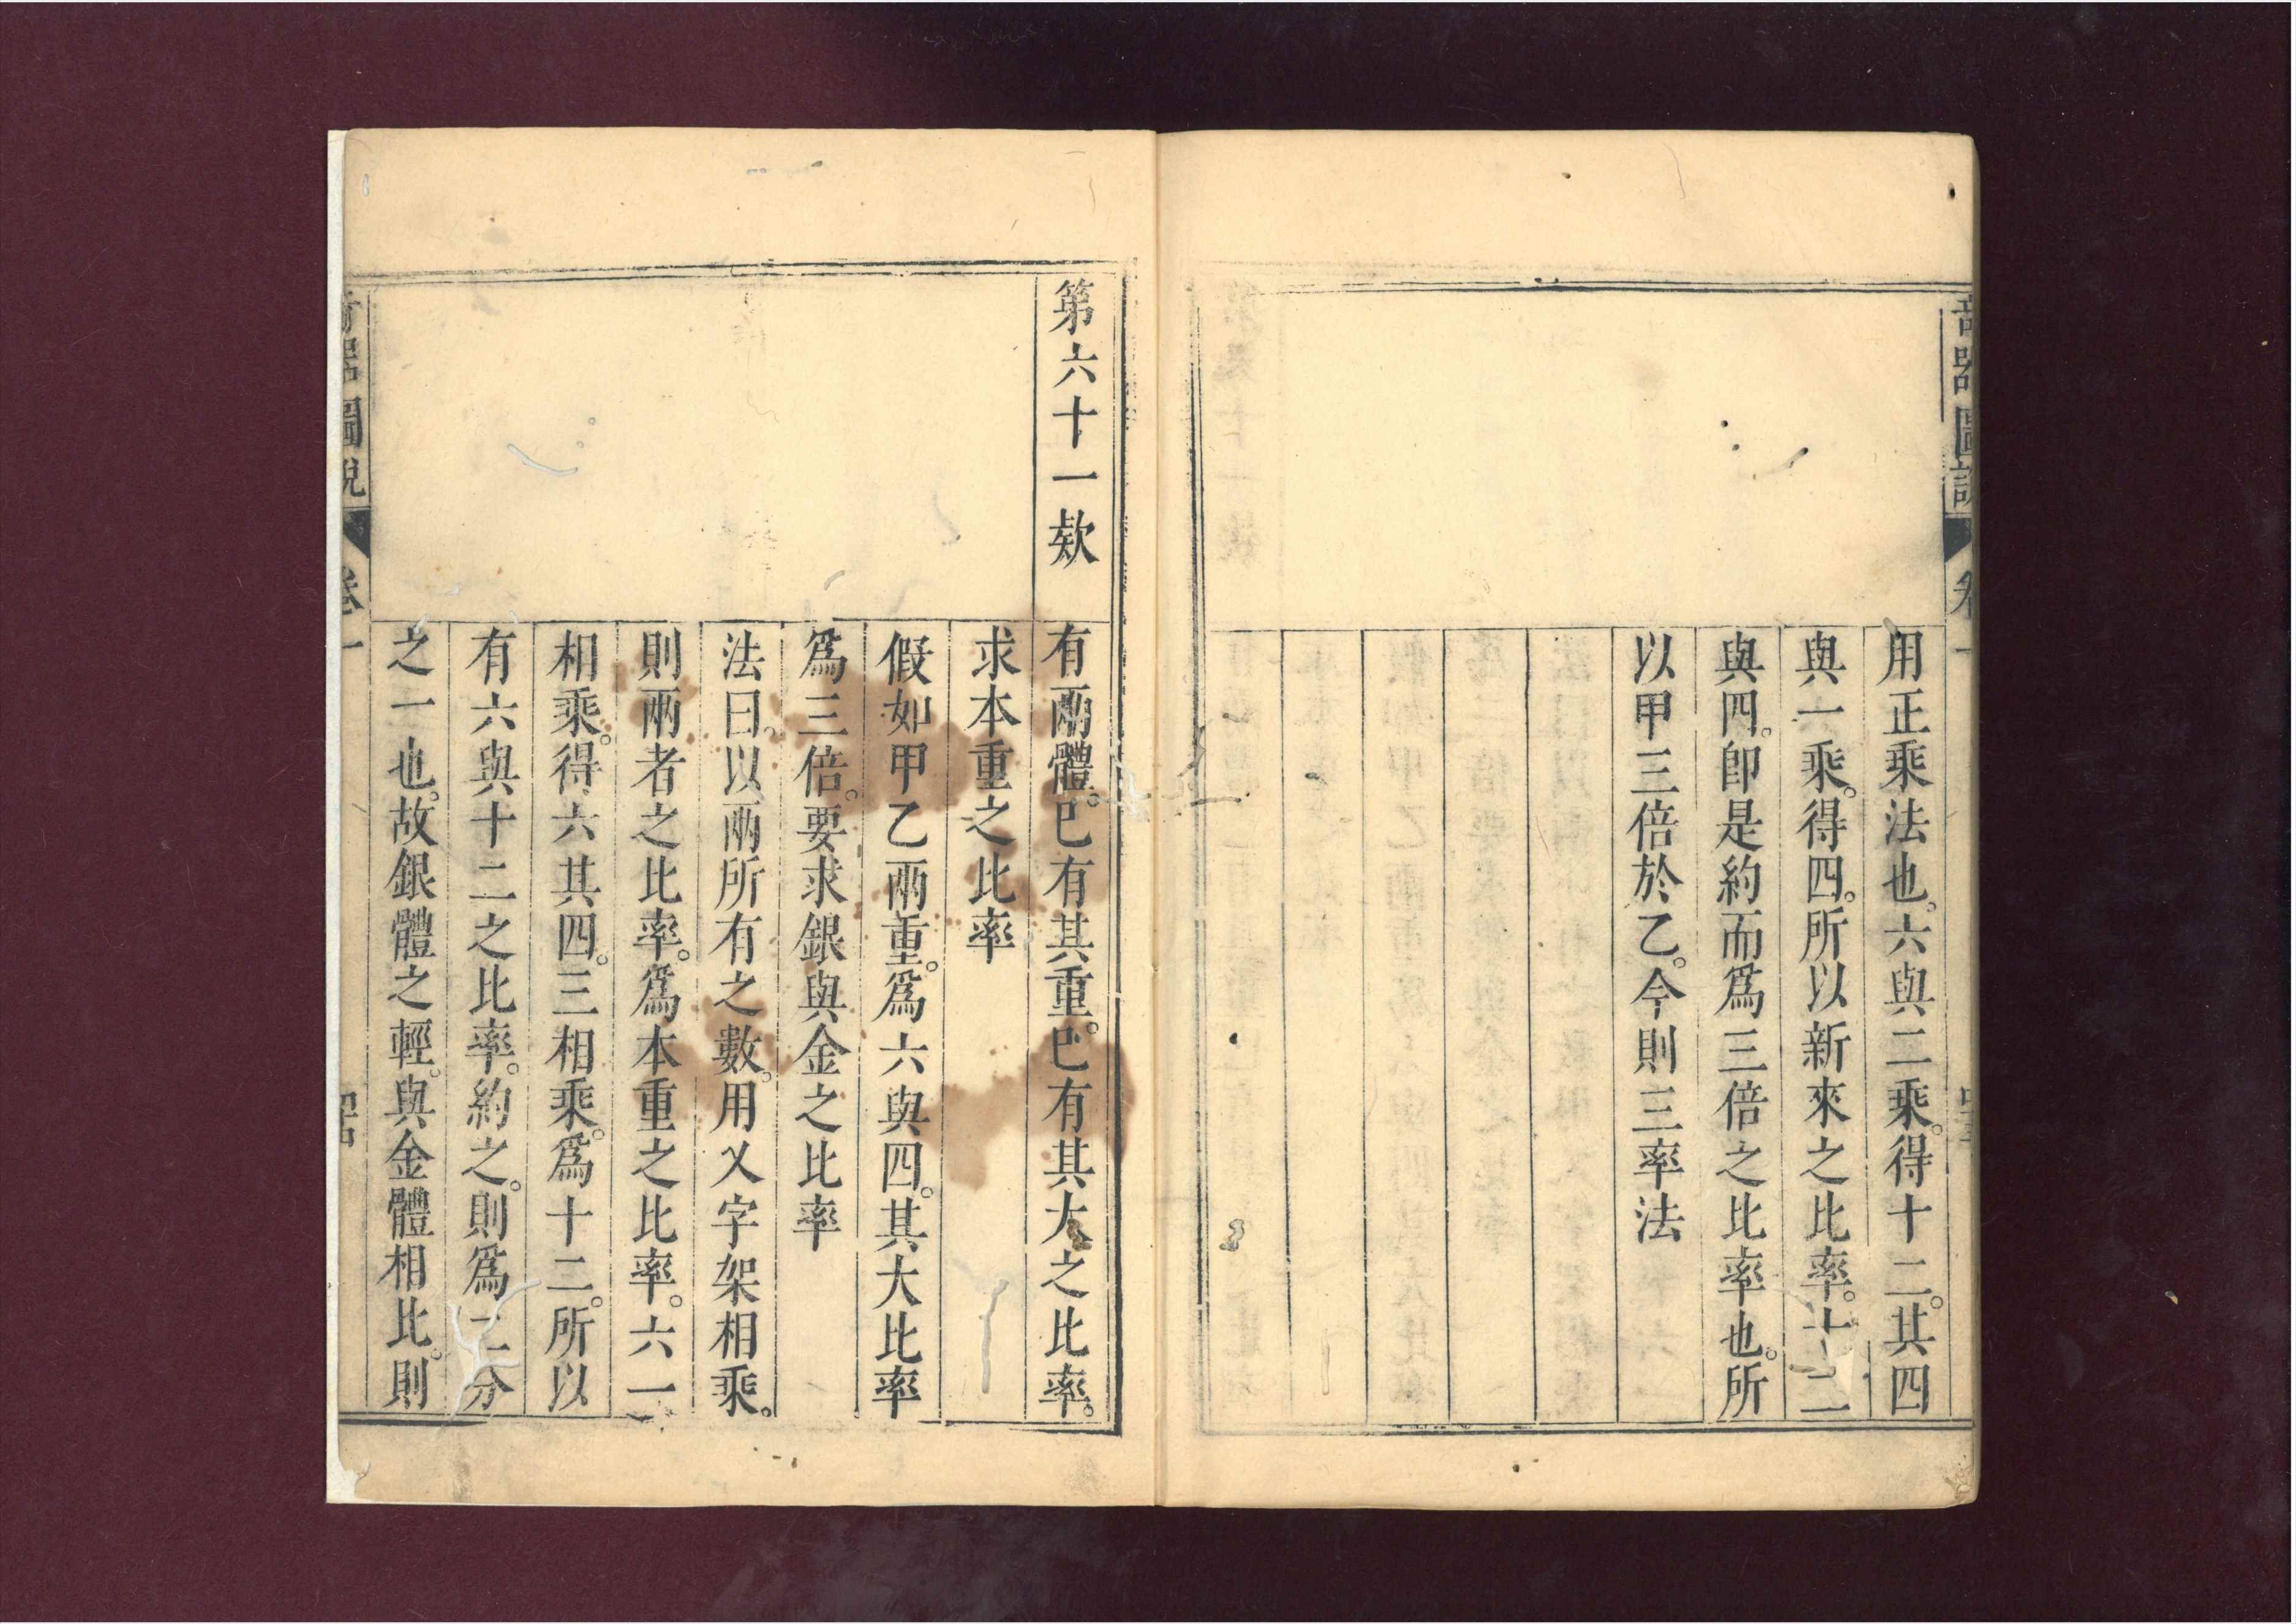 用正乘法也。六與二乘。得十二。其四
與一乘。得四。所以新來之比率。十二
與四。即是約而爲三倍之比率也。所
以甲三倍於乙。今則三率法
第六十一欵
有兩體。已有其重。已有其大之比率。
求本重之比率
假如甲乙兩重。爲六與四。其大比率
爲三倍。要求銀與金之比率
法曰。以兩所有之數。用乂字架相乘。
則兩者之比率。爲本重之比率。六一
相乘。得六其四。三相乘。爲十二。所以
有六與十二之比率。約之。則爲二分
之一也。故銀體之輕。與金體相比。則
奇器圖說 卷一